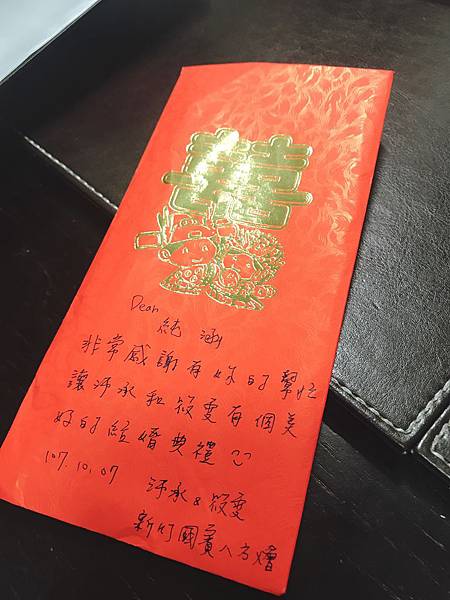 囍
Dear
純涵
非常感謝有妳的幫忙
讓沛承和筱雯有個美
好的結婚典禮
107.10.07
沛承&筱雯
新竹國賓八方燴